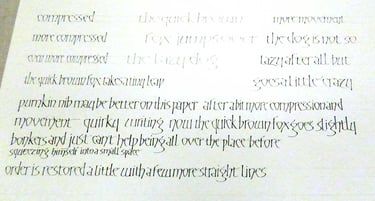 compressed the quick brown more movement
more compressed fox jumps over the dog is not so
even more compressed the lazy dog lazy after all but
the quick brown fox takes a tiny leap goes a little crazy
pumkin nib may be better on this paper after a bit more compression and
movement quirky writing now the quick brown fox goes slightly
bonkers and just can't help being all over the place before
squeezing himself into a small space
order is restored a little with a few more straight lines